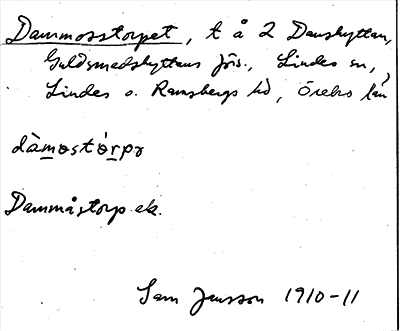 Dammosstorpet, t å 2 Danshyttan,
Guldsmedshyttans förs., Lindes sn,
Lindes o. Ramsbergs hd, Örebro län
dàmostórpə
Dammåstorp ek.
Sam Jansson 1910-11